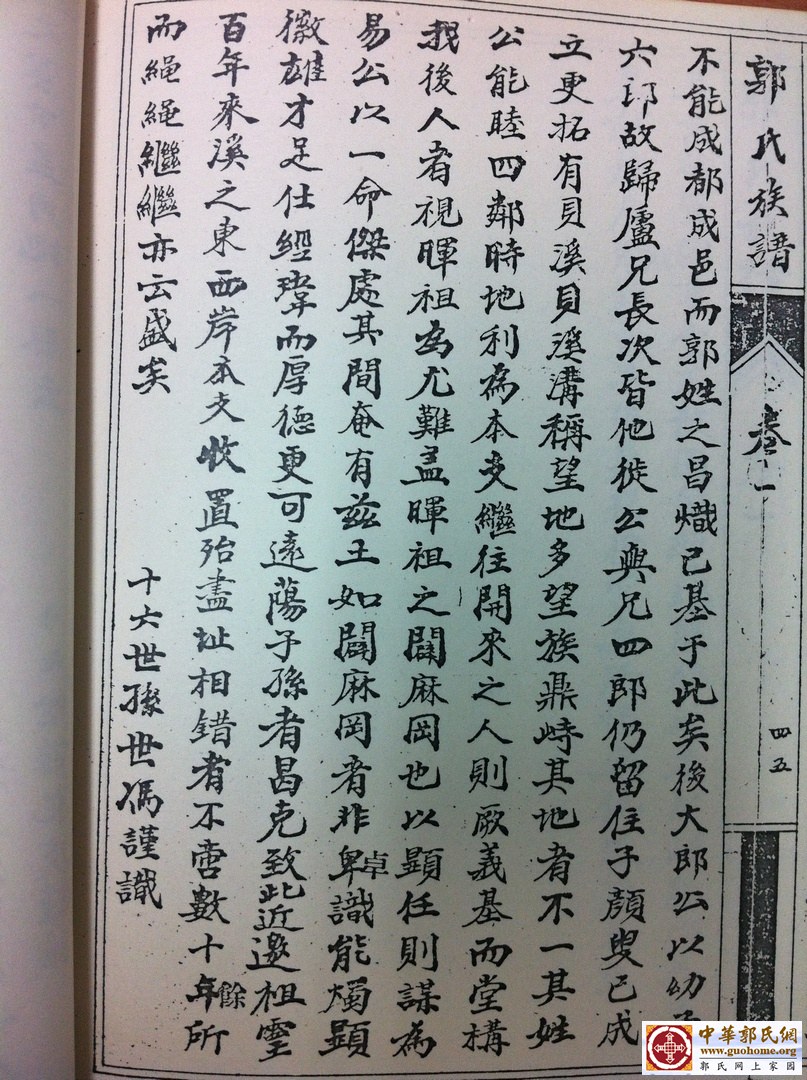 郭氏族譜
卷一
四五
不能成都成邑而郭姓之昌熾已基于此矣後大郎公以幼子
六郎故歸廬兄長次皆他徙公與兄四郎仍留住子顏叟已成
立更拓有貝溪貝溪溝稱望地多望族鼎峙其地者不一其姓
公能睦四鄰時地利為本支繼往開來之人則厥義基而堂構
我後人者視暉祖為尤難盖暉祖之闢麻岡也以顕任則謀為
易公以一命傑處其間奄有兹土如闢麻岡者非卑卓識能燭顕
徽雄才足仕經瑋而厚德更可遠蕩子孫者曷克致此近邀祖靈
百年來溪之東西岸本支收置殆盡址相錯者不啻數十年餘所
而繩繩繼繼亦云盛矣
十六世孫世馮謹識
中華郭氏網
www.guohome.org
郭氏网上家园